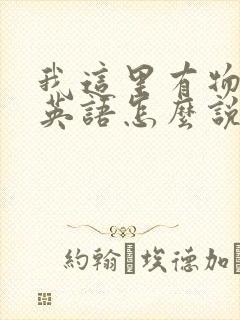 我這里有物
英語怎麼說
約翰 埃德加